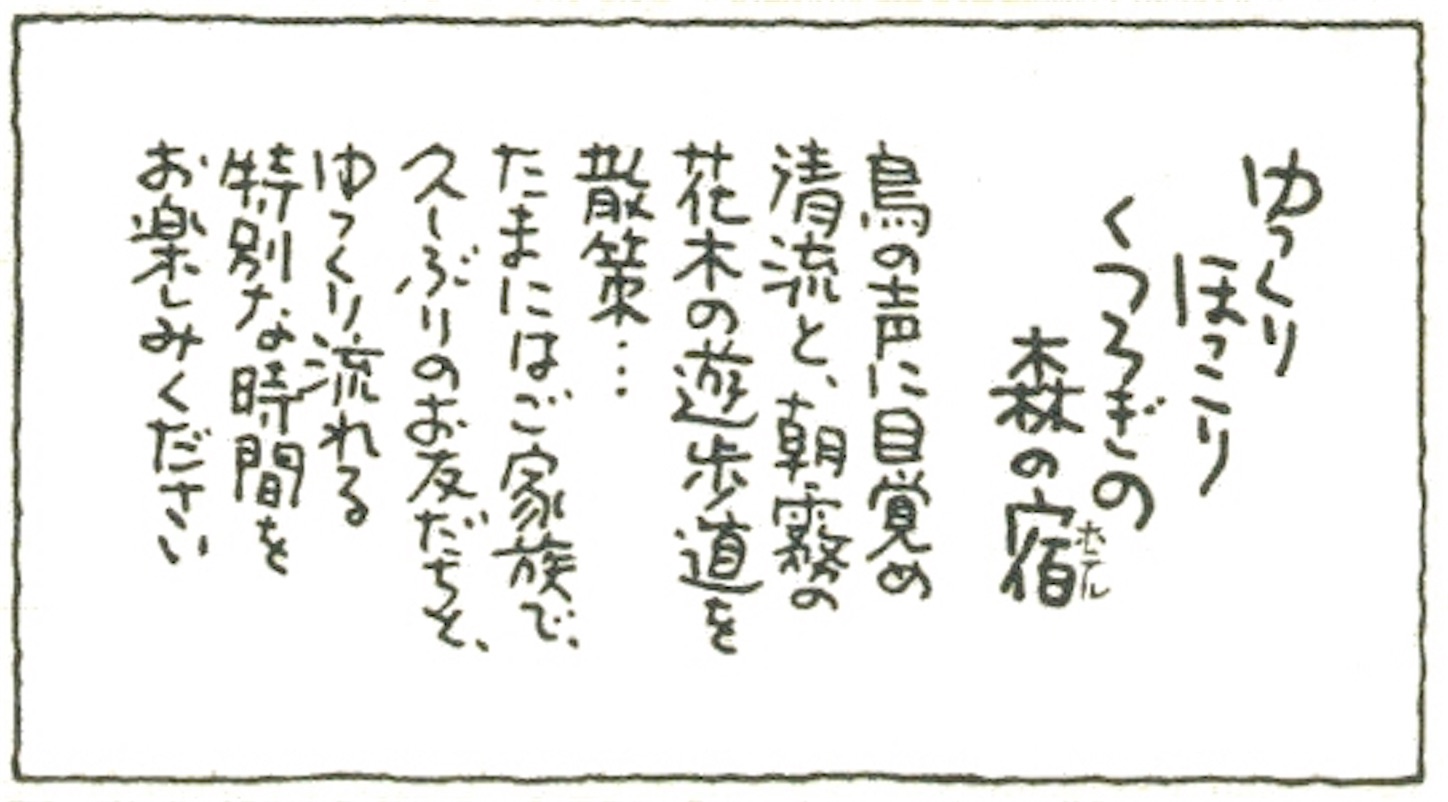 ゆっくり
ほっこり
くつろぎの
森の宿
ホテル
鳥の声に目覚め
清流と、朝霧の
花木の遊歩道を
散策…
たまにはご家族で、
久しぶりのお友だちと、
ゆっくり流れる
特別な時間を
お楽しみください